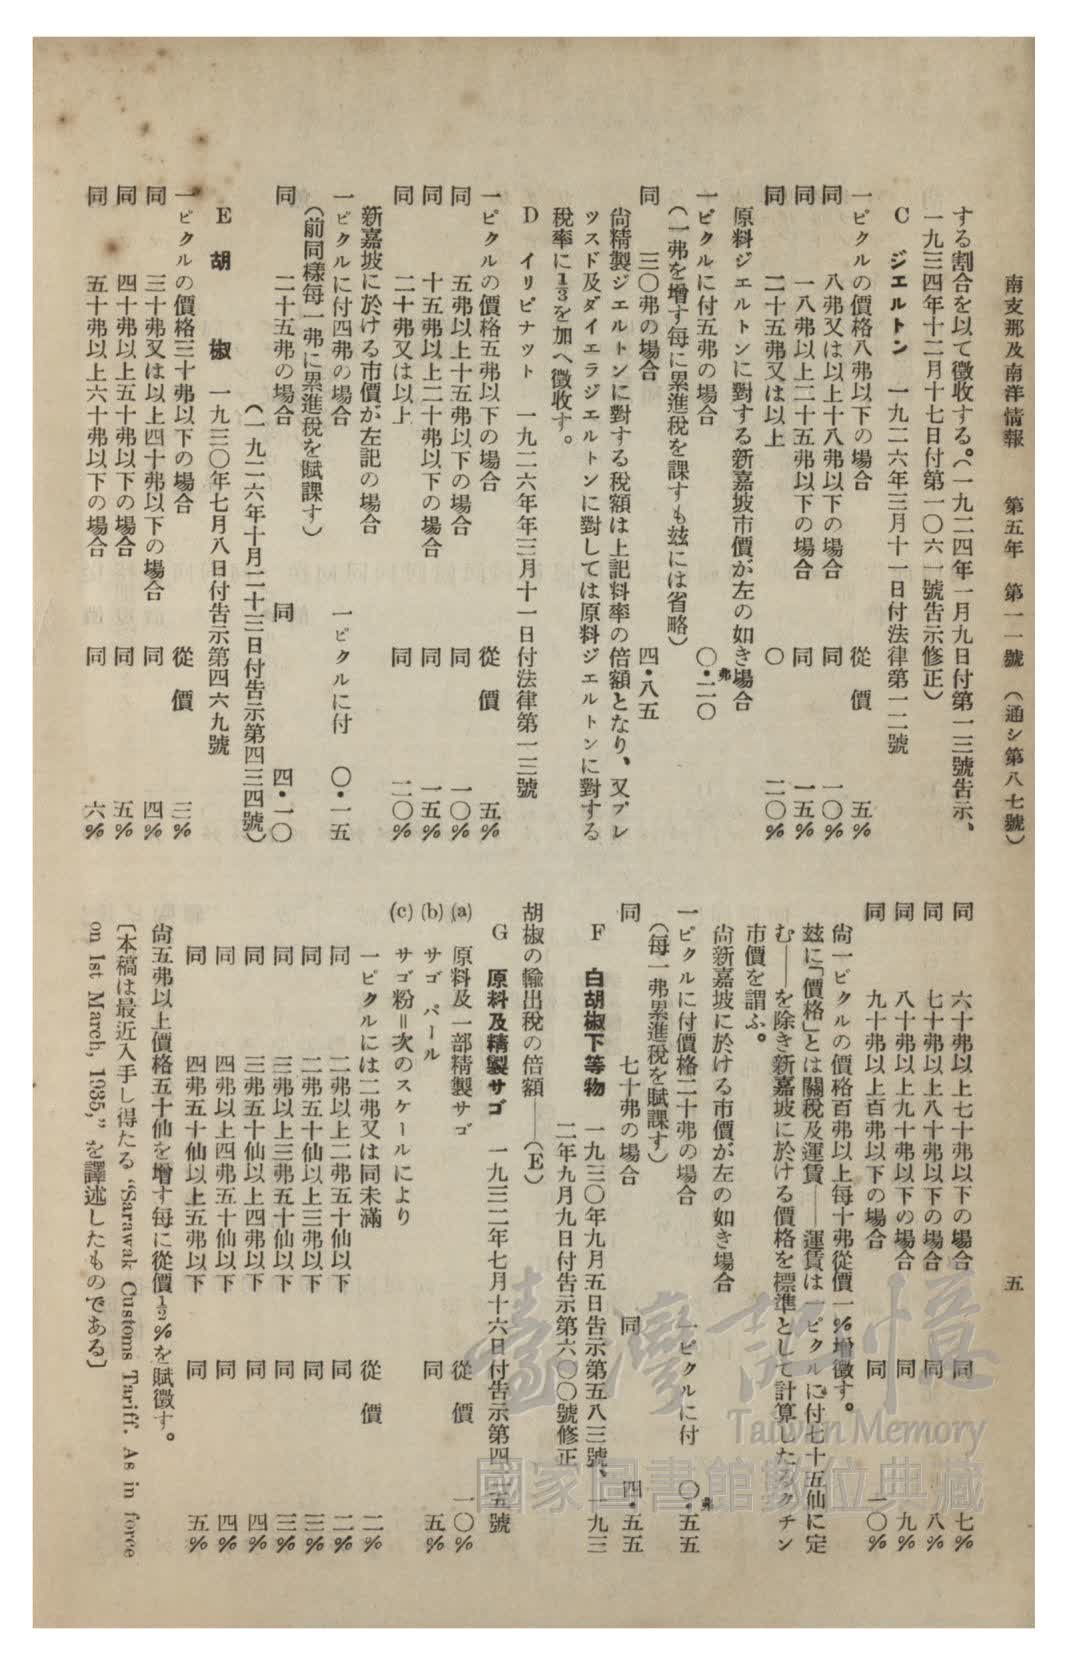 南支那及南洋情報　第五年　第一一號　(通シ第八七號)　五
する割合を以て徵收する。(一九二四年一月九日付第一三號告示、
一九三四年十二月十七日付第一〇六一號告示修正)
C　ジエルトン　一九二六年三月十一日付法律第一二號
一ピクルの價格八弗以下の場合　從　價　五%
同　八弗又は以上十八弗以下の場合　同　一〇%
同　一八弗以上二十五弗以下の場合　同　一五%
同　二十五弗又は以上　〇　二〇%
原料ジエルトンに對する新嘉坡市價が左の如き場合
一ピクルに付五弗の場合　〇・二〇弗
(一弗を增す每に累進稅を課すも玆には省略)
同　三〇弗の場合　四・八五
尙精製ジエルトンに對する稅額は上記料率の倍額となり、又プレ
ツスド及ダイエラジエルトンに對しては原料ジエルトンに對する
稅率に1/3を加へ徵收す。
D　イリピナット　一九二六年年三月十一日付法律第一三號
一ピクルの價格五弗以下の場合　從　價　五%
同　五弗以上十五弗以下の場合　同　一〇%
同　十五弗以上二十弗以下の場合　同　一五%
同　二十弗又は以上　同　二〇%
新嘉坡に於ける市價が左記の場合
一ピクルに付四弗の場合　一ピクルに付　〇・一五
(前同樣每一弗に累進稅を賦課す)
同　二十五弗の場合　同　四・一〇
(一九二六年十月二十三日付告示第四三四號)
E　胡　椒　一九三〇年七月八日付告示第四六九號
一ピクルの價格三十弗以下の場合　從　價　三%
同　三十弗又は以上四十弗以下の場合　同　四%
同　四十弗以上五十弗以下の場合　同　五%
同　五十弗以上六十弗以下の場合　同　六%
同　六十弗以上七十弗以下の場合　同　七%
同　七十弗以上八十弗以下の場合　同　八%
同　八十弗以上九十弗以下の場合　同　九%
同　九十弗以上百弗以下の場合　同　一〇%
尙一ピクルの價格百弗以上每十弗從價一%增徵す。
玆に「價格」とは關稅及運賃——運賃は一ピクルに付七十五仙に定
む——を除き新嘉坡に於ける價格を標準として計算したるクチン
市價を謂ふ。
尙新嘉坡に於ける市價が左の如き場合
一ピクルに付價格二十弗の場合　一ピクルに付　〇・五五弗
(每一弗累進稅を賦課す)
同　七十弗の場合　同　四・五五
F　白胡椒下等物　一九三〇年九月五日告示第五八三號、一九三
二年九月九日付告示第六〇〇號修正
胡椒の輸出稅の倍額——(E)
G　原料及精製サゴ　一九三二年七月十六日付告示第四二五號
(a)　原料及一部精製サゴ　從　價　一〇%
(b)　サゴ　パール　同　五%
(c)　サゴ粉=次のスケールにより
一ピクルには二弗又は同未滿　從　價　二%
同　二弗以上二弗五十仙以下　同　二%
同　二弗五十仙以上三弗以下　同　三%
同　三弗以上三弗五十仙以下　同　三%
同　三弗五十仙以上四弗以下　同　四%
同　四弗以上四弗五十仙以下　同　四%
同　四弗五十仙以上五弗以下　同　五%
尙五弗以上價格五十仙を增す每に從價1/2%を賦徵す。
〔本稿は最近入手し得たる “Sarawak Customs Tariff. As in force
on 1st March, 1935,” を譯述したものである〕
臺灣記憶
Taiwan Memory
國家圖書館數位典藏